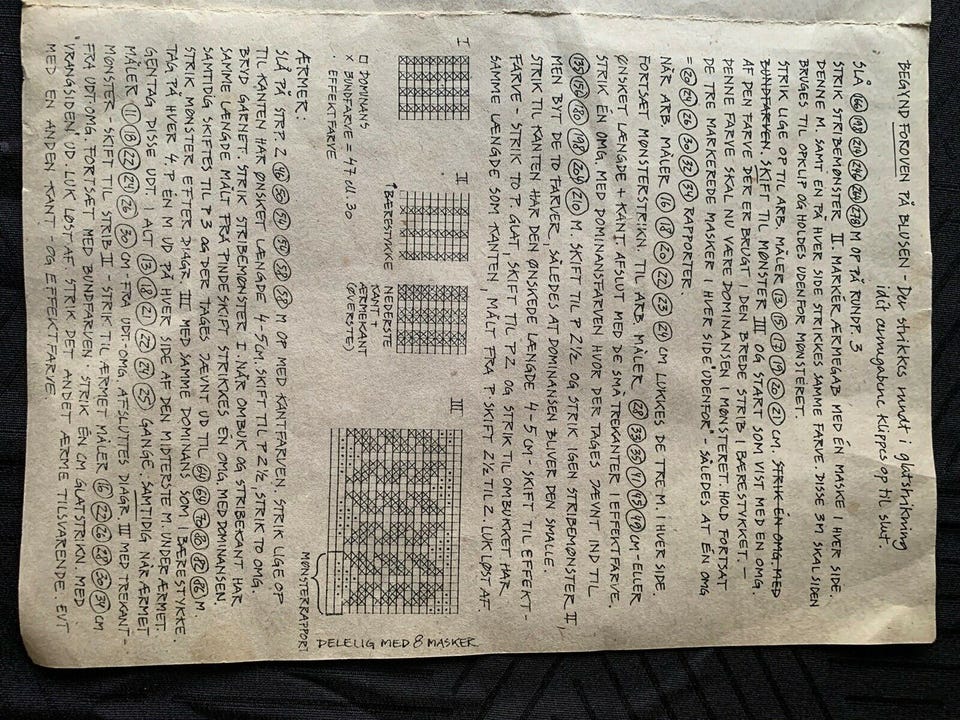 BEGYND FOROVEN PÅ BLUSEN - Der strikkes rundt i glatstrikning
idet ærmegabene klippes op til slut.
SLÅ (166) (198) (214) (246) (264) (278) M OP PÅ RUNDP. 3
STRIK STRIBEMØNSTER II. MARKÉR ÆRMEGAB MED ÉN MASKE I HVER SIDE.
DENNE M. SAMT EN PÅ HVER SIDE STRIKKES SAMME FARVE. DISSE 3M SKAL SIDEN
BRUGES TIL OPKLIP OG HOLDES UDENFOR MØNSTERET.
STRIK LIGE OP TIL ARB. MÅLER (13) (15) (17) (19) (20) (21) CM. STRIK ÉN OMG. MED
BUNDFARVEN. SKIFT TIL MØNSTER III OG START SOM VIST MED EN OMG.
AF DEN FARVE DER ER BRUGT I DEN BREDE STRIB I BÆRESTYKKET. -
DENNE FARVE SKAL NU VÆRE DOMINANSEN I MØNSTERET. HOLD FORTSAT
DE TRE MARKEREDE MASKER I HVER SIDE "UDENFOR" - SÅLEDES AT ÉN OMG
= (20) (24) (26) (30) (32) (34) RAPPORTER.
NÅR ARB. MÅLER (16) (18) (20) (22) (23) (24) CM LUKKES DE TRE M. I HVER SIDE.
FORTSÆT MØNSTERSTRIKN. TIL ARB. MÅLER (28) (33) (38) (41) (45) (49) CM - ELLER
ØNSKET LÆNGDE + KANT. AFSLUT MED DE SMÅ TREKANTER I EFFEKTFARVE.
STRIK ÉN OMG. MED DOMINANSFARVEN HVOR DER TAGES JÆVNT IND TIL
(135) (150) (180) (198) (201) (210) M. SKIFT TIL P 2½ OG STRIK IGEN STRIBEMØNSTER II,
MEN BYT DE TO FARVER, SÅLEDES AT DOMINANSEN BLIVER DEN SMALLE.
STRIK TIL KANTEN HAR DEN ØNSKEDE LÆNGDE 4-5 CM. SKIFT TIL EFFEKT-
FARVE - STRIK TO P. GLAT, SKIFT TIL P2 OG STRIK TIL OMBUKKET HAR
SAMME LÆNGDE SOM KANTEN, MÅLT FRA P-SKIFT 2½ TIL 2. LUK LØST AF
I
II
III
□ DOMINANS
X BUNDFARVE = 47 ell. 30
· EFFEKTFARVE
BÆRESTYKKE
NEDERSTE
KANT +
ÆRMEKANT
(ØVERSTE)
MØNSTERRAPPORT
DELELIG MED 8 MASKER
ÆRMER:
SLÅ PÅ STRP. 2 (46) (50) (54) (54) (58) (58) M OP MED KANTFARVEN. STRIK LIGE OP
TIL KANTEN HAR ØNSKET LÆNGDE 4-5 CM. SKIFT TIL P 2½, STRIK TO OMG.
BRYD GARNET. STRIK STRIBEMØNSTER I. NÅR OMBUK OG STRIBEKANT HAR
SAMME LÆNGDE MÅLT FRA PINDESKIFT STRIKKES ÉN OMG. MED DOMINANSEN.
SAMTIDIG SKIFTES TIL P 3 OG DER TAGES JÆVNT UD TIL (64) (64) (70) (78) (82) (86) M.
STRIK MØNSTER EFTER DIAGR. III MED SAMME DOMINANS SOM I BÆRESTYKKE
TAG PÅ HVER 4. P ÉN M UD PÅ HVER SIDE AF DEN MIDTERSTE M. UNDER ÆRMET.
GENTAG DISSE UDT. I ALT (13) (18) (21) (22) (24) (25) GANGE. SAMTIDIG NÅR ÆRMET
MÅLER (11) (18) (22) (24) (26) (30) CM - FRA UDT.-OMG. AFSLUTTES DIAGR. III MED TREKANT-
MØNSTER - SKIFT TIL STRIB. II - STRIK TIL ÆRMET MÅLER (16) (22) (26) (28) (30) (34) CM
FRA UDT-OMG. FORTSÆT MED BUNDFARVEN. STRIK ÉN CM GLATSTRIKN. MED
"VRANGSIDEN" UD. LUK LØST AF. STRIK DET ANDET ÆRME TILSVARENDE. EVT
MED EN ANDEN KANT - OG EFFEKTFARVE